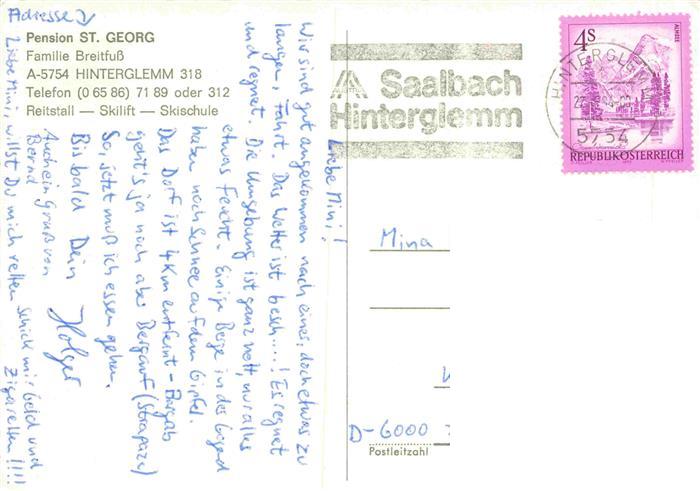 Adresse
Pension ST. GEORG
Familie Breitfuß
A-5754 HINTERGLEMM 318
Telefon (0 65 86) 71 89 oder 312
Reitstall — Skilift — Skischule
Liebe Mini!
Wir sind gut angekommen nach einer, doch etwas zu
langen, Fahrt. Das Wetter ist besch...! Es regnet
und regnet. Die Umgebung ist ganz nett, nur alles
etwas feucht. Einige Berge in der Gegend
haben noch Schnee auf dem Gipfel.
Das Dorf ist 4 Km entfernt - Bergab
geht's ja noch aber Bergauf (Strapaze)
So, jetzt muß ich essen gehen.
Bis bald Dein Holger
Auch ein Gruß von
Bernd
Liebe Mini, willst Du mich retten schick mir Geld und
Zigaretten!!!!
Saalbach
Hinterglemm
HINTERGLEMM
5754
4S
ALMSEE
REPUBLIK ÖSTERREICH
Mina
D-6000
Postleitzahl